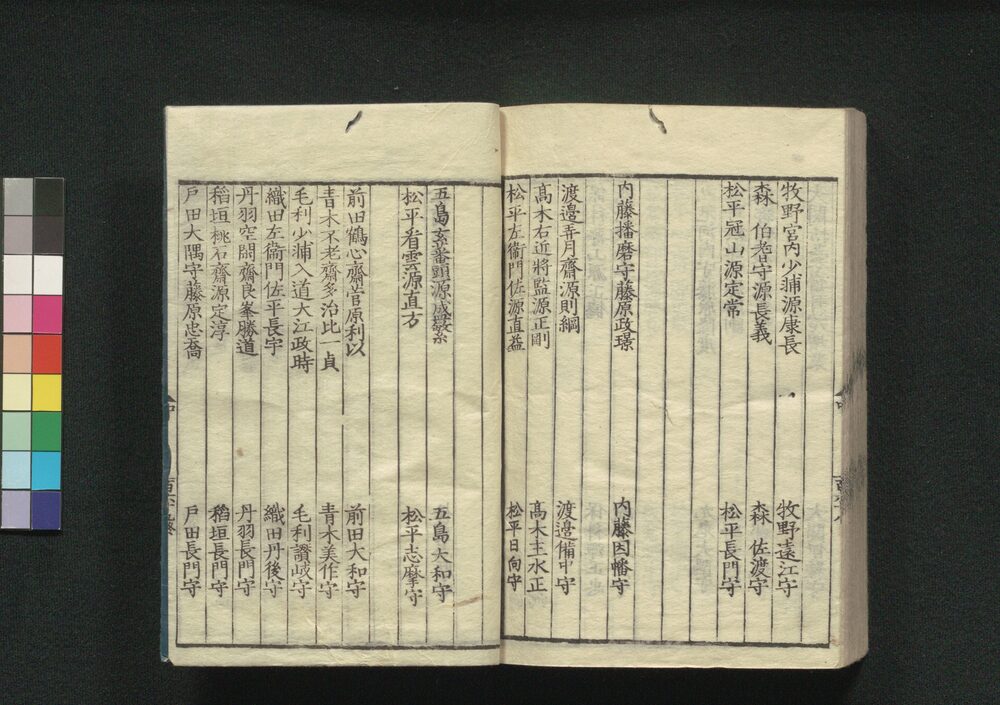 牧野宮内少輔源康長　牧野遠江守
森　伯耆守源長義　森　佐渡守
松平冠山源定常　松平長門守
内藤播磨守藤原政環　内藤因幡守
渡邉弄月齋源則綱　渡邉備中守
髙木右近將監源正剛　髙木主水正
松平左衞門佐源直益　松平日向守
五島玄蕃頭源盛繁　五島大和守
松平看雲源直方　松平志摩守
前田鶴心齋菅原利以　前田大和守
青木不老齋多治比一貞　青木美作守
毛利少浦入道大江政時　毛利讃岐守
織田左衞門佐平長宇　織田丹後守
丹羽空閑齋良峯勝道　丹羽長門守
稻垣桃石齋源定淳　稻垣長門守
戸田大隅守藤原忠喬　戸田長門守